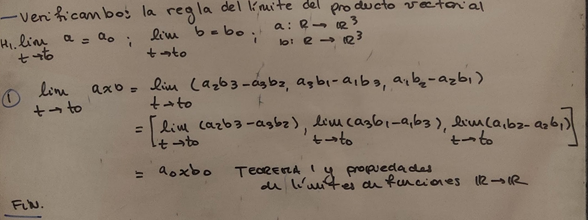 — Verificambos la regla del límite del producto vectorial
H1. lim t→to a = a0 ; lim t→to b = b0 ; a: R → R³
b: R → R³
① lim t→to axb = lim t→to (a2b3-a3b2, a3b1-a1b3, a1b2-a2b1)
= [lim t→to (a2b3-a3b2), lim t→to (a3b1-a1b3), lim t→to (a1b2-a2b1)]
= a0xb0 TEOREMA 1 y propiedades
de límites de funciones R→R
FIN.